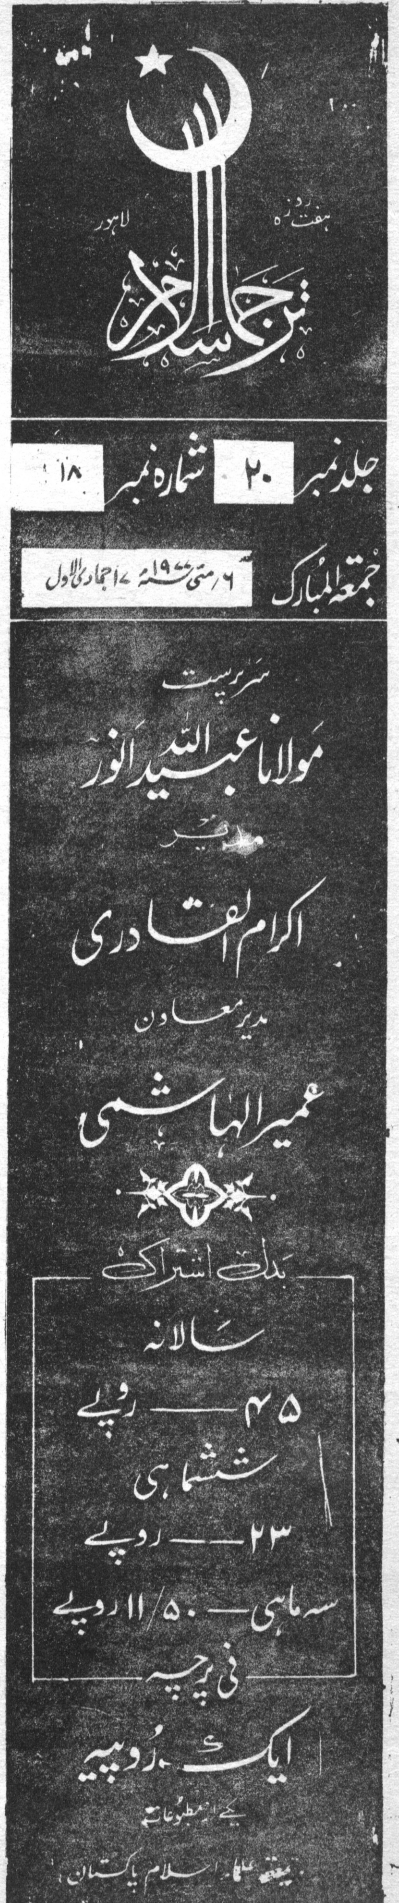 ہفت روزہ
لاہور
ترجمان اسلام
جلد نمبر ۲۰ شمارہ نمبر ۱۸
جمعۃ المبارک ۶ مئی ۱۹۷۷ء ۱۷ جمادی الاول
سرپرست
مولانا عبید اللہ انور
مدیر
اکرام القادری
مدیر معاون
عمیر الہاشمی
بدل اشتراک
سالانہ
۴۵ — روپے
ششماہی
۲۳ — روپے
سہ ماہی — ۱۱/۵۰ روپے
فی پرچہ
ایک روپیہ
یکے از مطبوعات
جمعیۃ علماء اسلام پاکستان